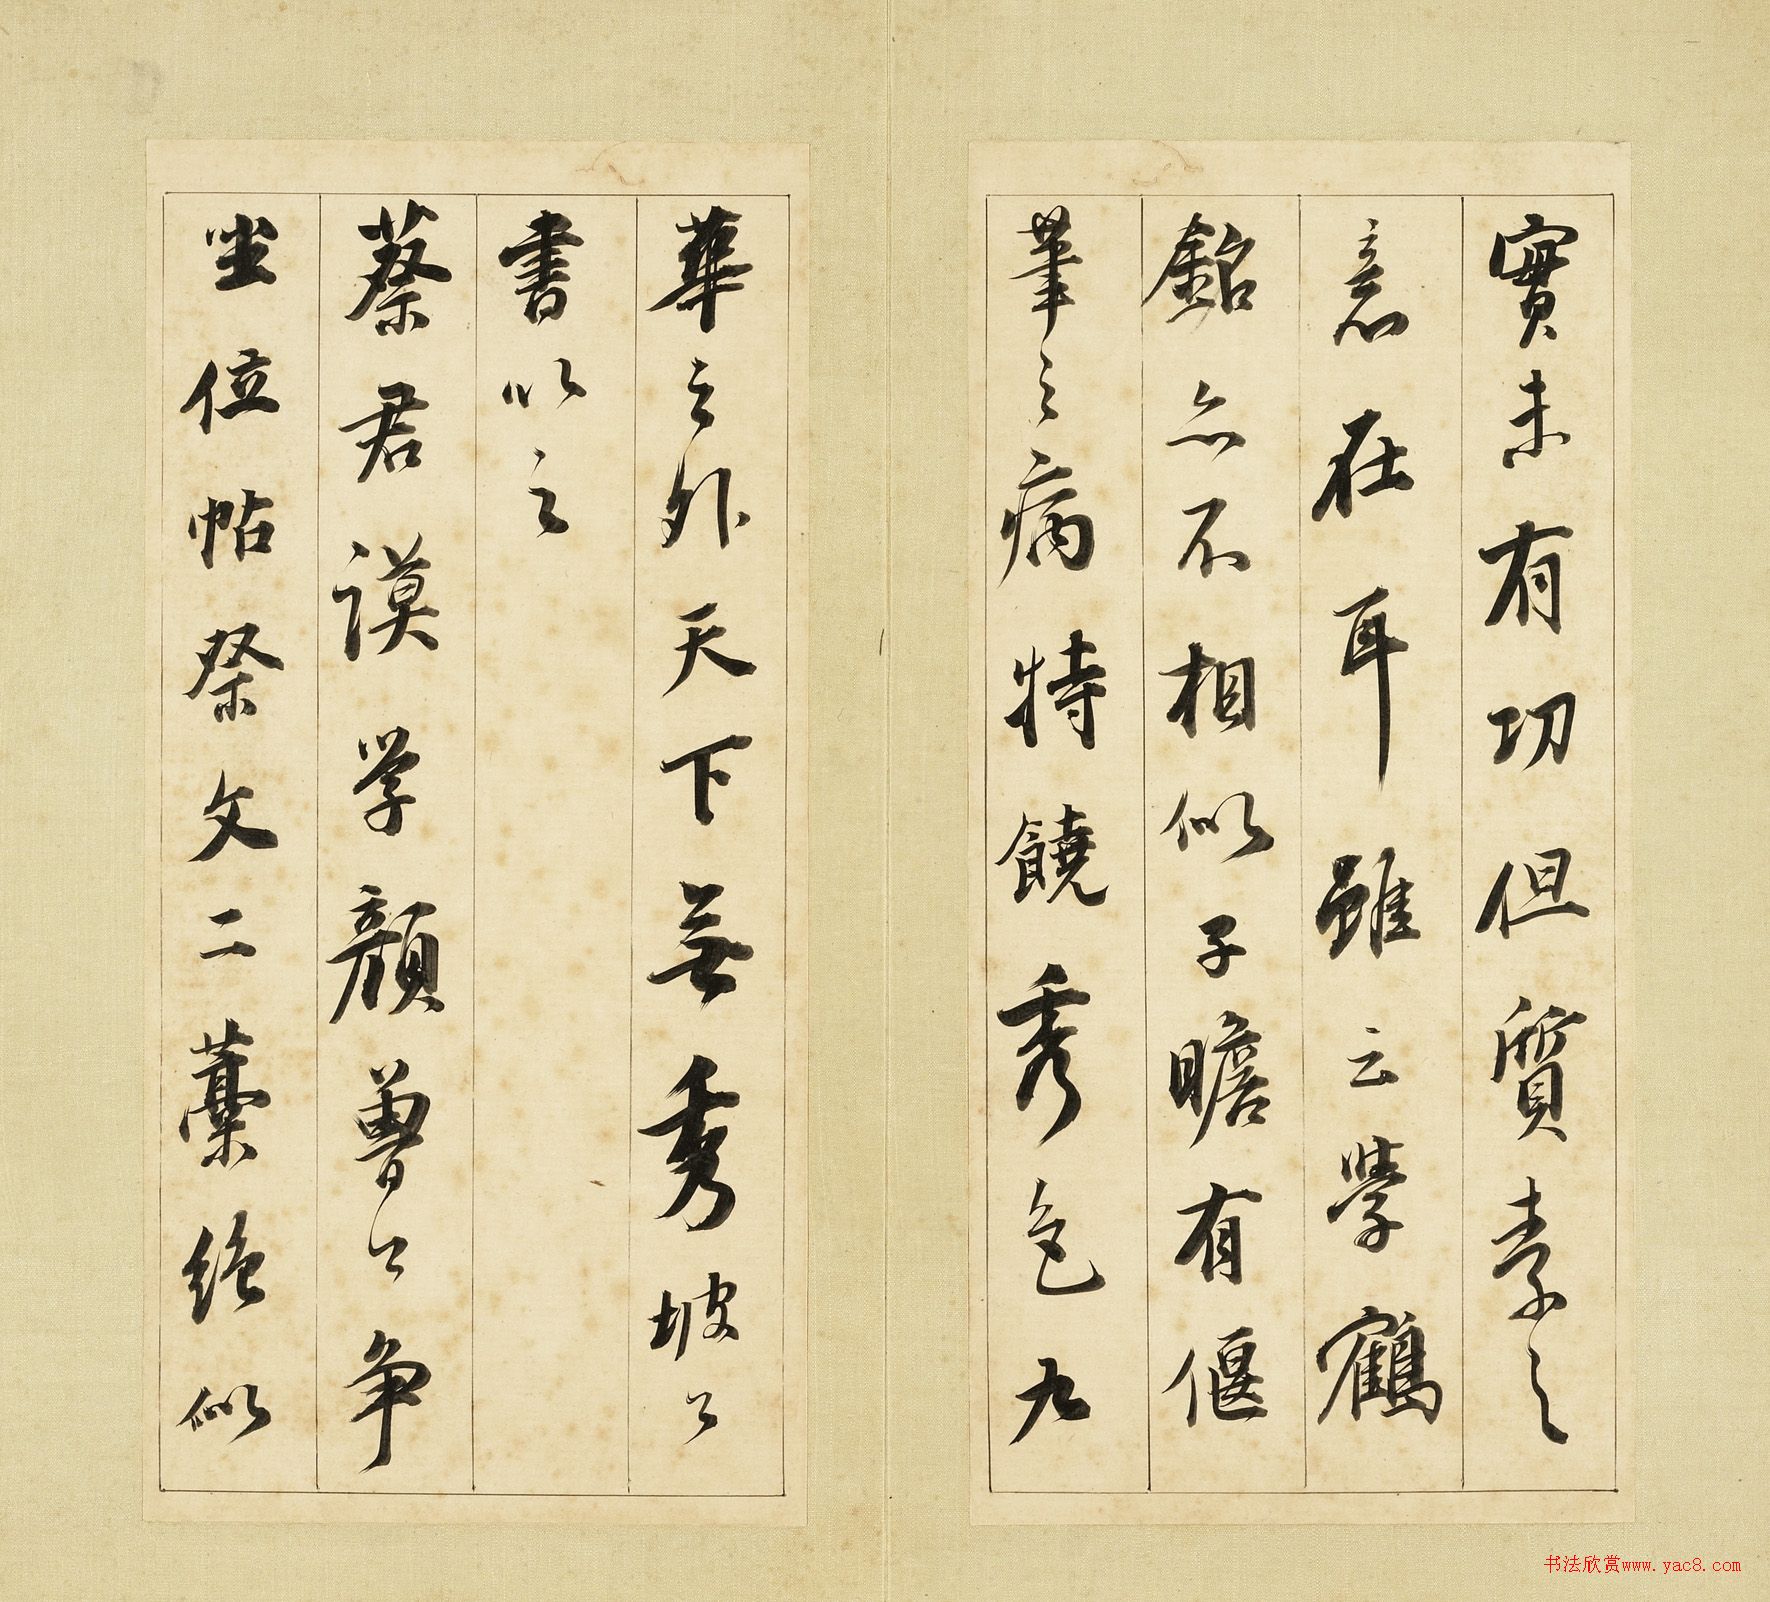 實未有功但質素之
意在耳雖云學鶴
銘亦不相似子瞻有偃
筆之病特饒秀色九
華之外天下無秀坡公
書似之
蔡君謨學顏魯公爭
坐位帖祭文二藁絕似
书法欣赏www.yac8.com